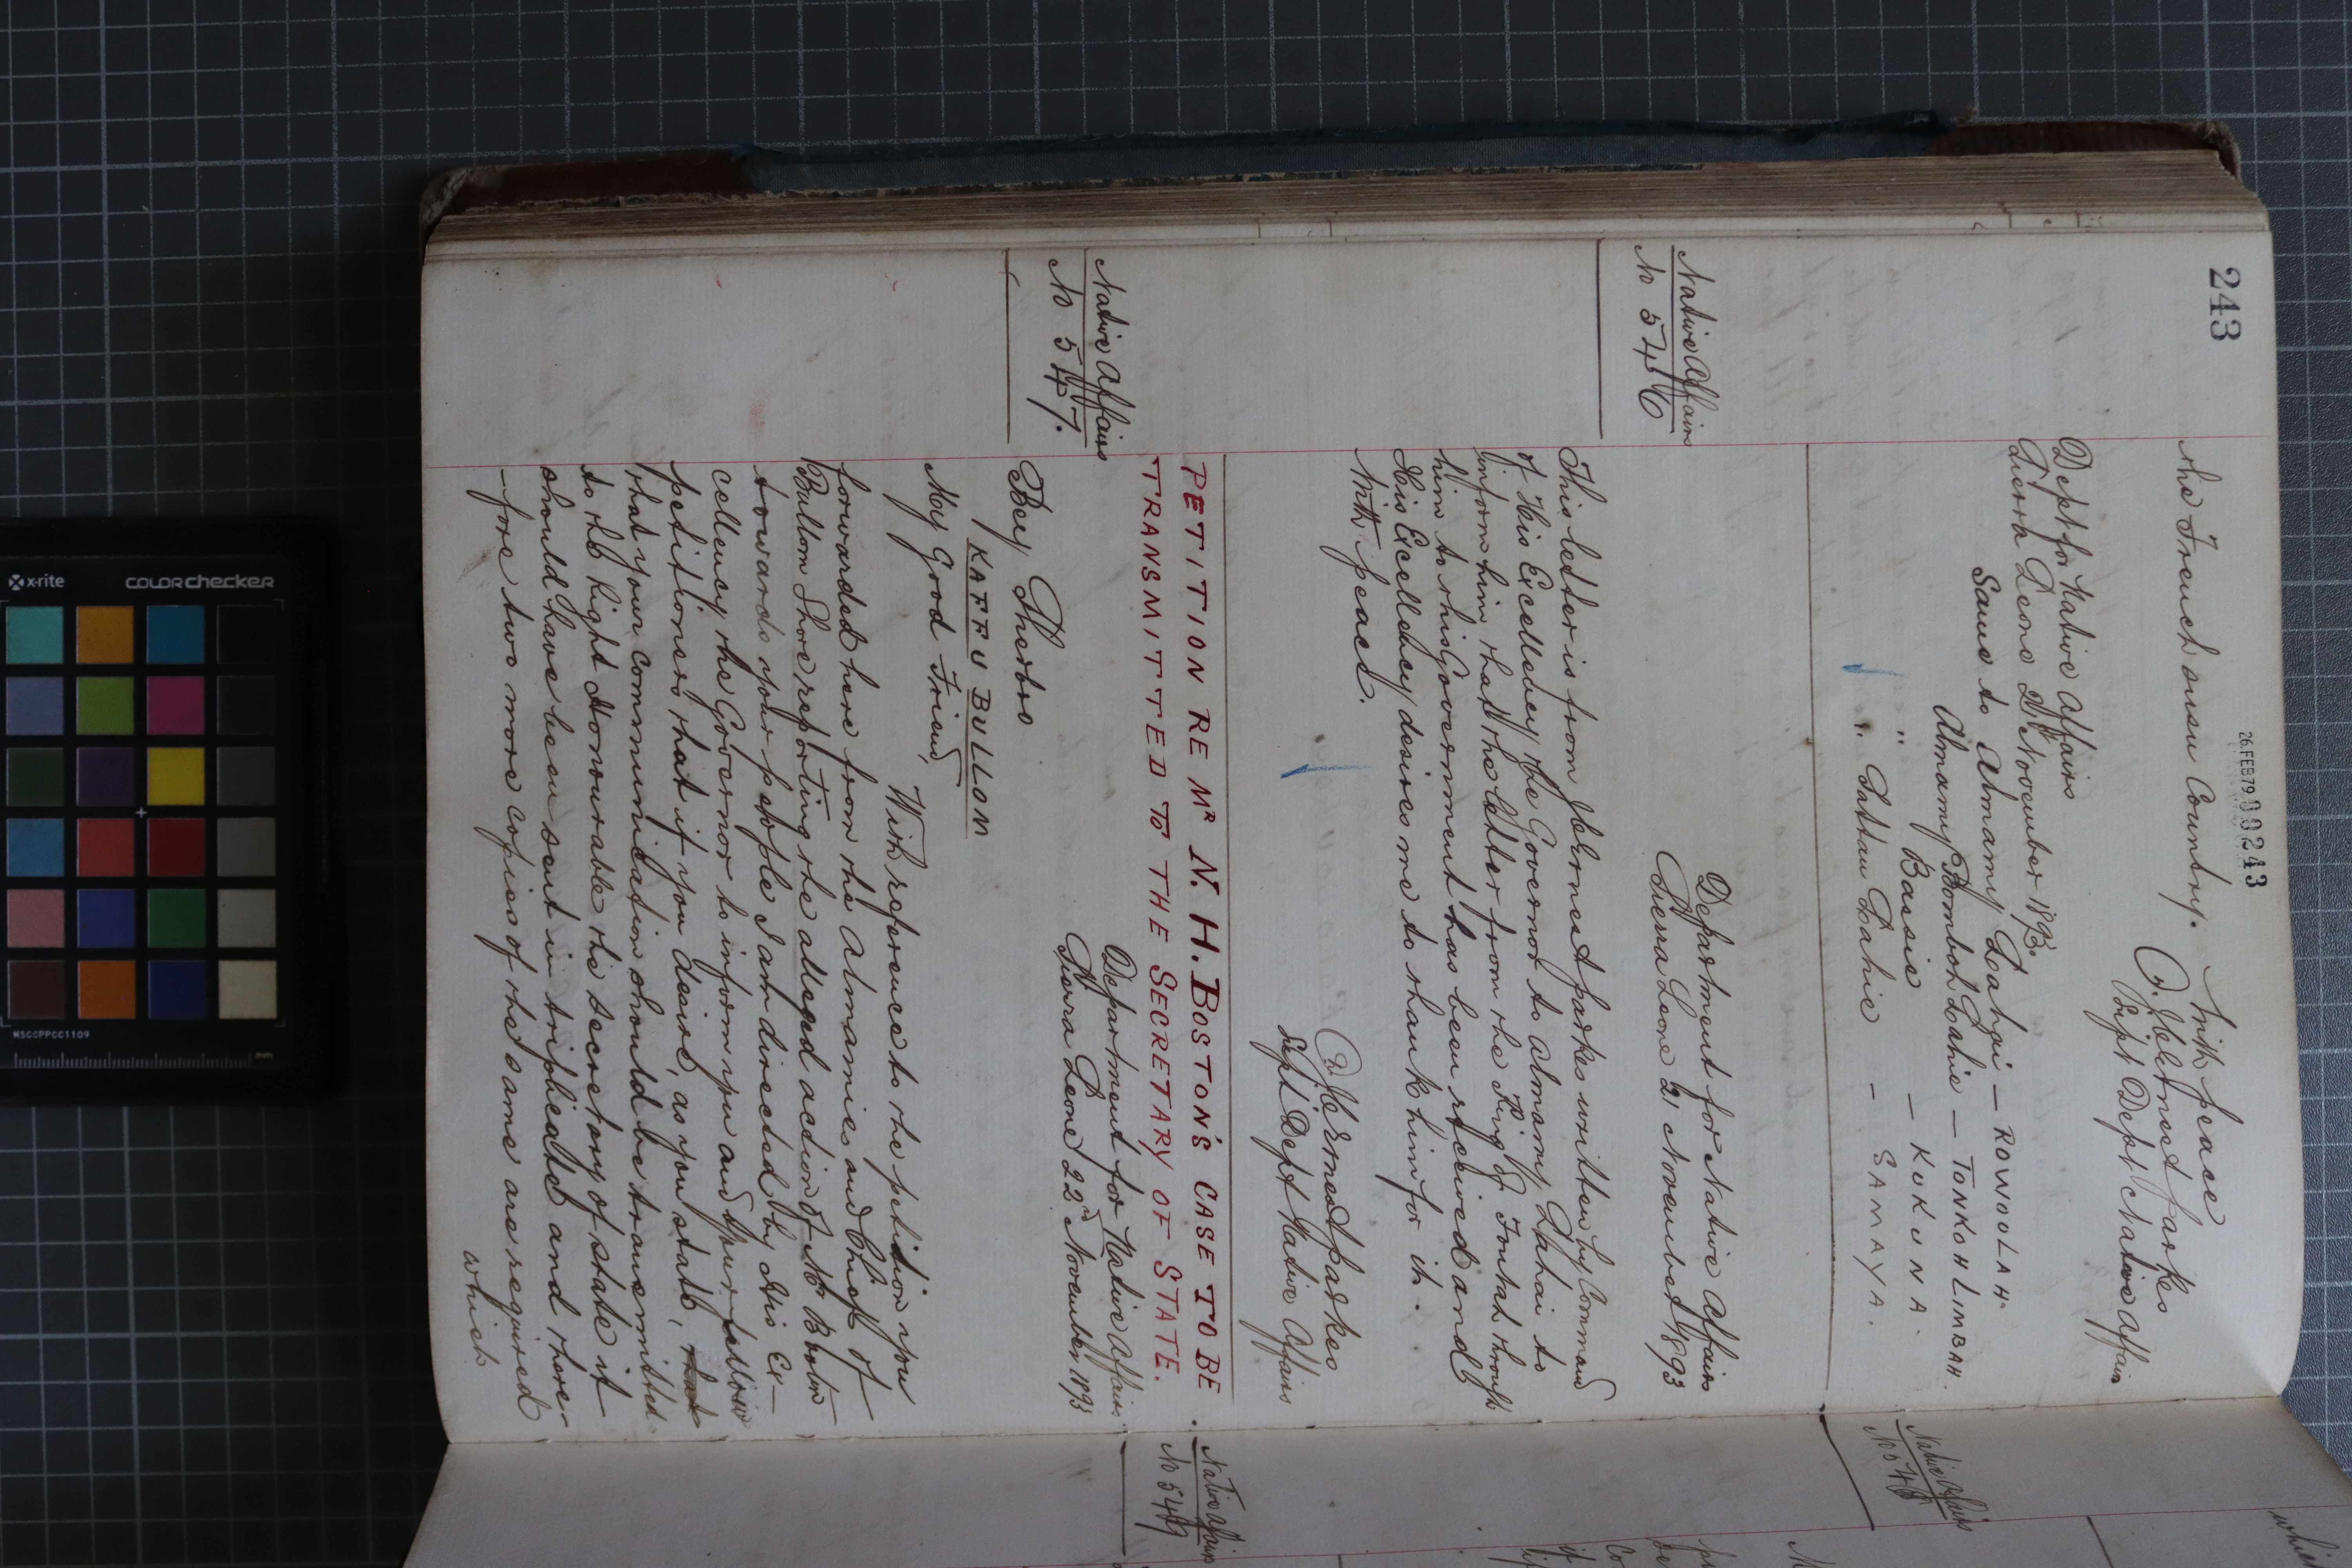 243
26.FEB79 000243
the French susu Country. With peace
J. C. Ernest Parkes
Supt Dept Native Affairs
Dept for Native Affairs
Sierra Leone 21st November 1893
Same to Almamy Lahai — ROWOOLAH.
Almamy Bomboh Lahie — TONKOH LIMBAH.
" Bassie — KUKUNA.
" Sattan Lahie — SAMAYA.
Native Affairs
No 546
Department for Native Affairs
Sierra Leone 21 November 1893
This letter is from J. C. Ernest Parkes written by Command
of His Excellency the Governor to Almamy Lahai to
inform him that the letter from the King of Foutah through
him to this Government has been received and
His Excellency desires me to thank him for it.
With peace.
J. C. Ernest Parkes
Supt Dept Native Affairs
PETITION RE MR N. H. BOSTON'S CASE TO BE
TRANSMITTED TO THE SECRETARY OF STATE.
Native Affairs
No 547.
Department for Native Affairs
Sierra Leone 22nd November 1893
Bey Sherbro
KAFFU BULLOM
My Good Friend,
With reference to the petition you
forwarded here from the Almamies and Chiefs of
Bullom Shore reporting the alleged action of Mr Boston
towards your people I am directed by His Ex-
cellency the Governor to inform you and your fellow
petitioners that if you desire, as you state, that
that your communication should be transmitted
to the Right Honourable the Secretary of State it
should have been sent in triplicate and there-
-fore two more copies of the same are required
which
Native Affairs
No 548
Native Affairs
No 549